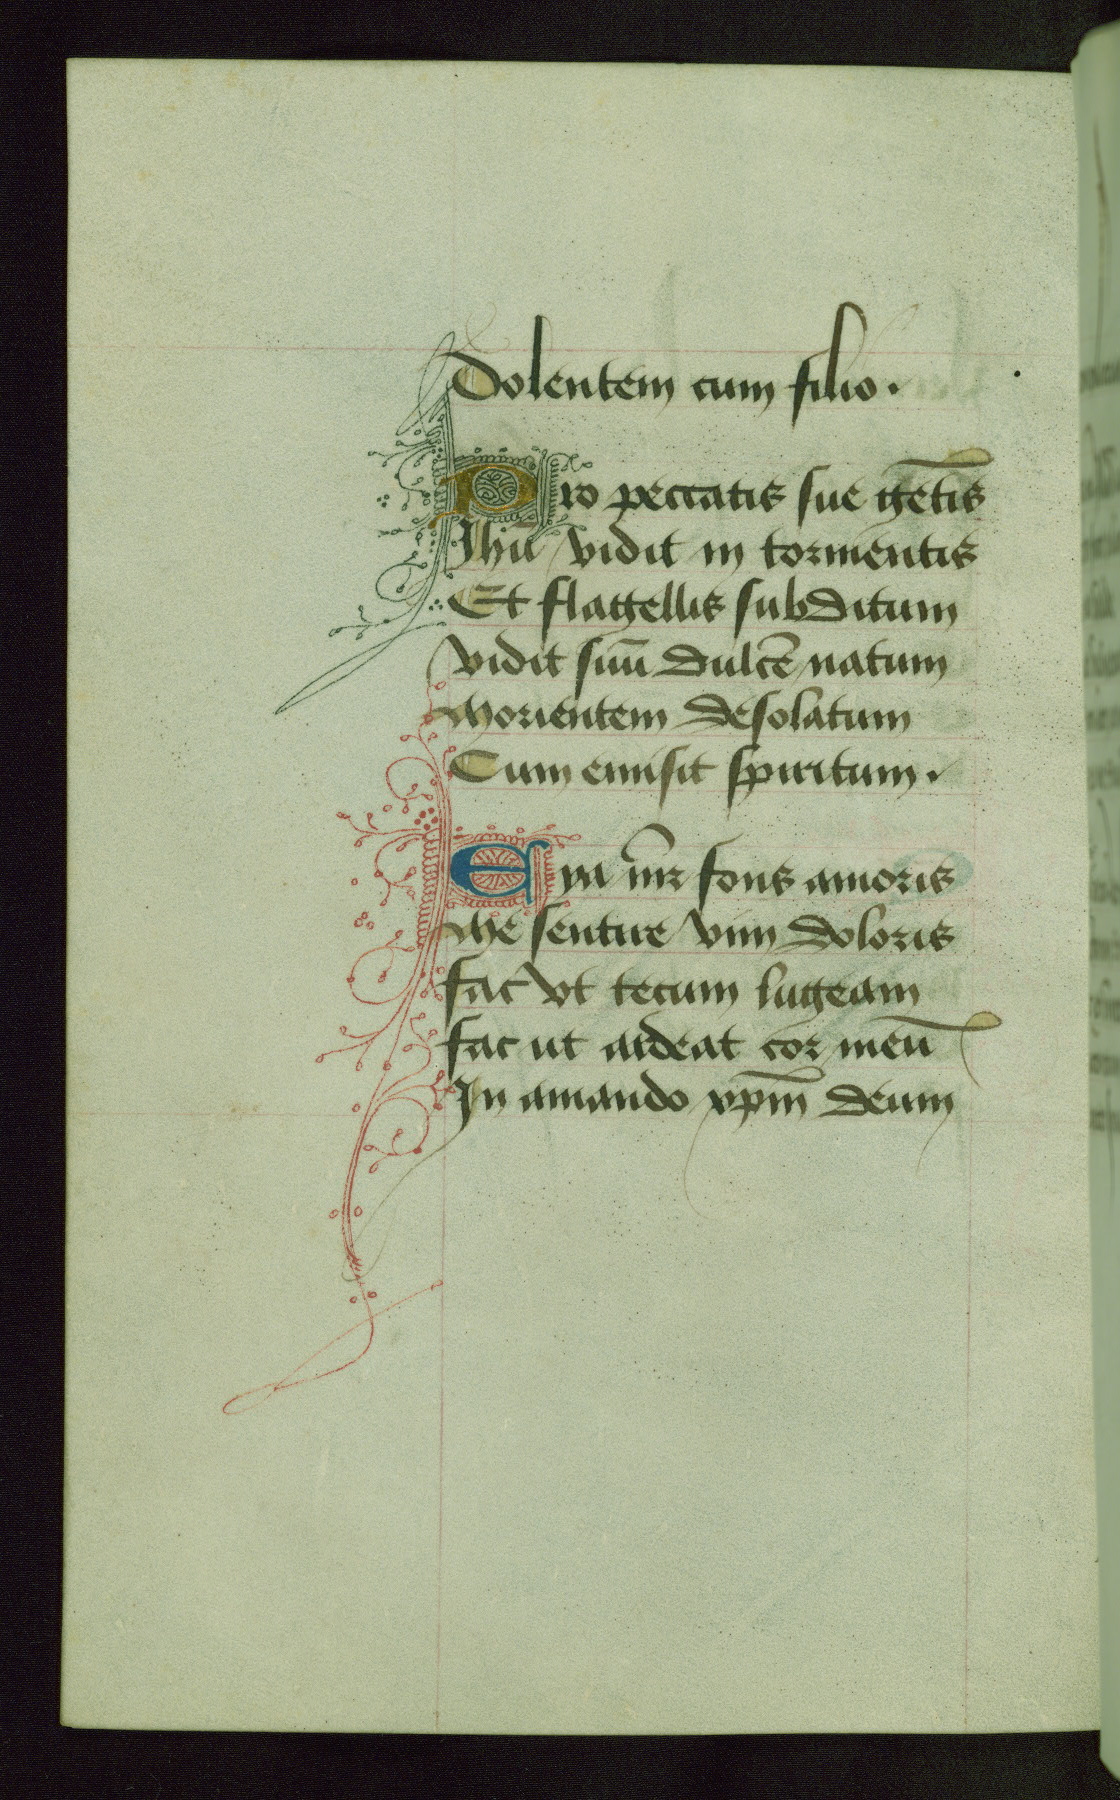 Dolentem cum filio.
Pro peccatis sue gētis
Jhū vidit in tormentis
Et flagellis subditum
vidit suū dulcē natum
Morientem desolatum
Cum emisit spiritum.
Eya mr̄ fons amoris
Me sentire vim doloris
fac vt tecum lugeam
fac ut ardeat cor meū
In amando xpm̄ deum